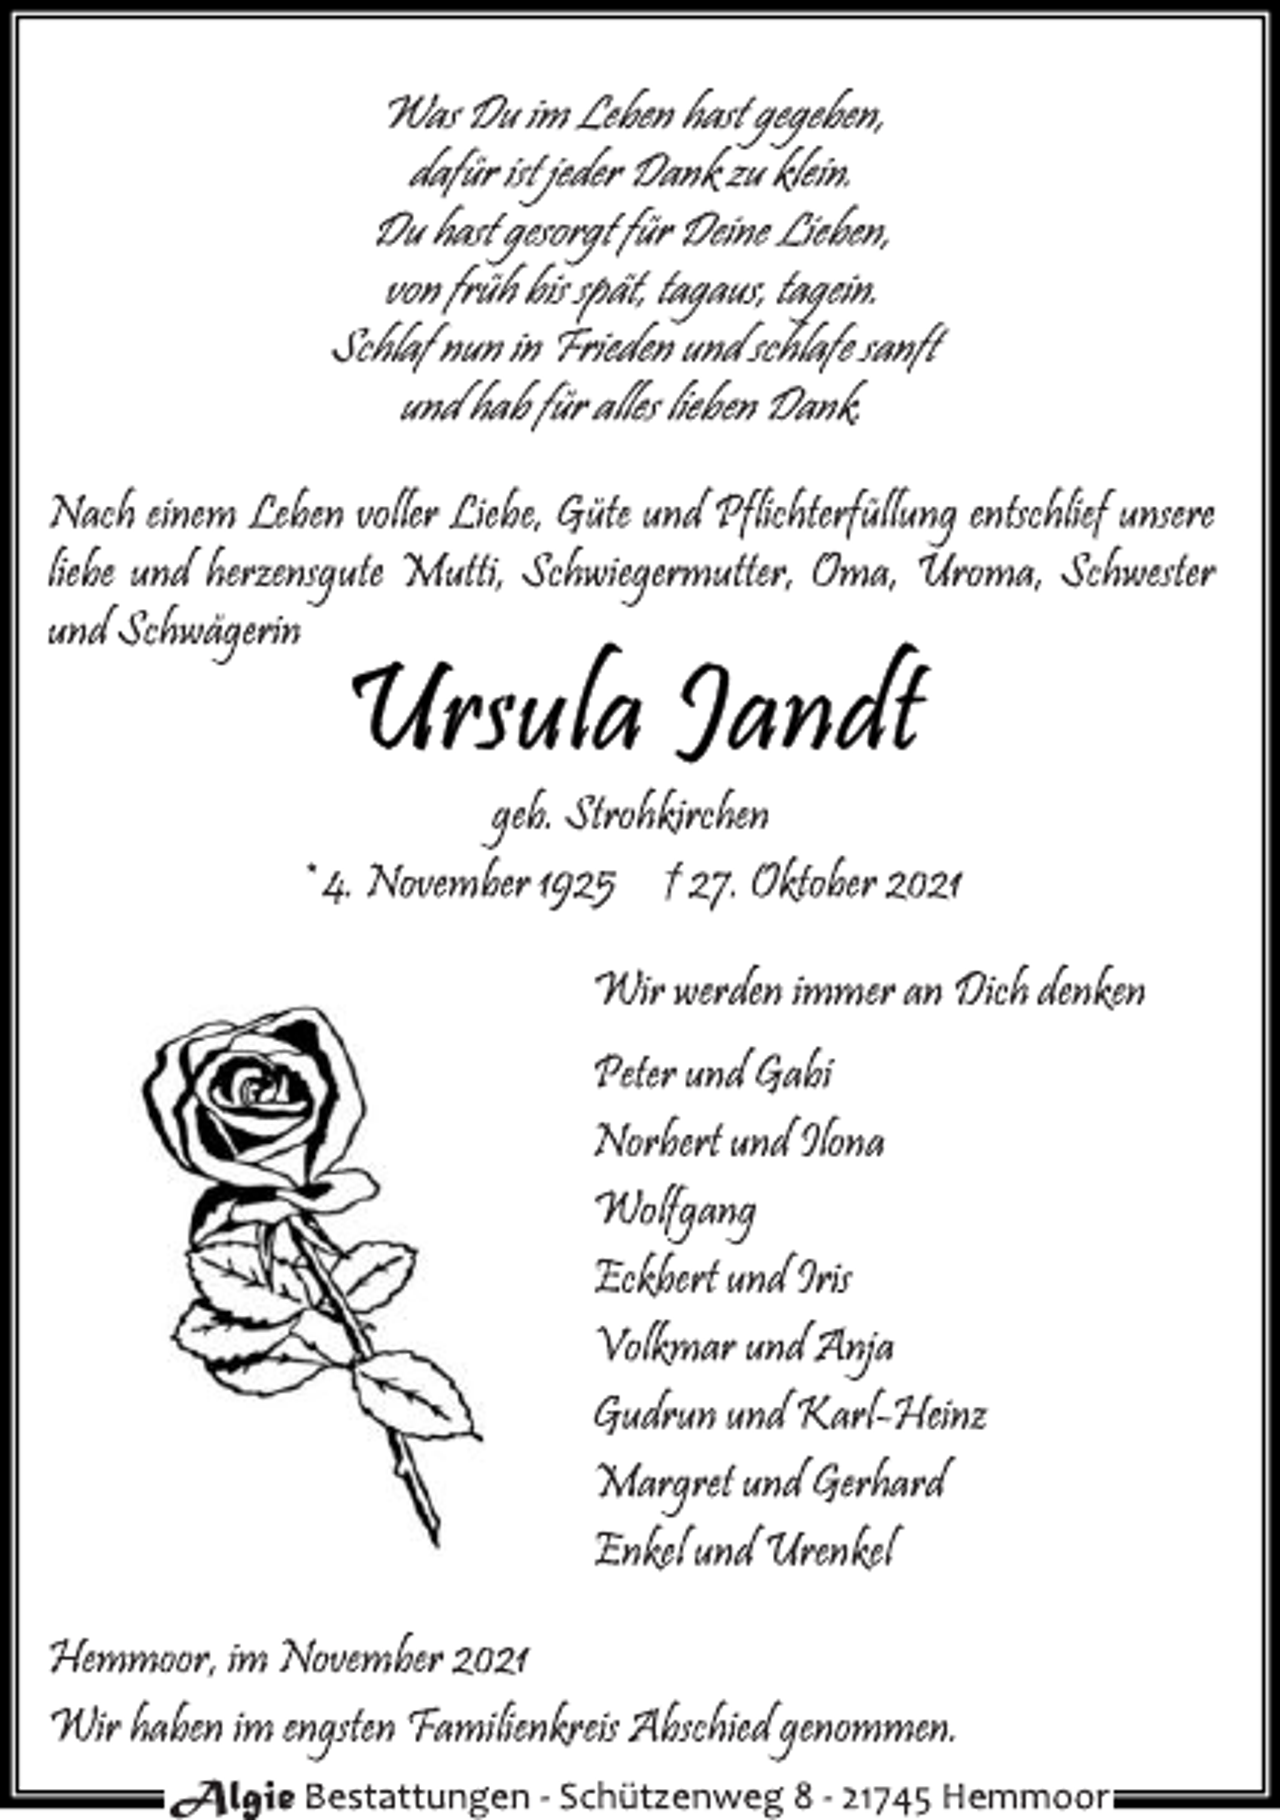 Was Du im Leben hast gegeben,
dafür ist jeder Dank zu klein.
Du hast gesorgt für Deine Lieben,
von früh bis spät, tagaus, tagein.
Schlaf nun in Frieden und schlafe sanft
und hab für alles lieben Dank.
Nach einem Leben voller Liebe, Güte und Pflichterfüllung entschlief unsere
liebe und herzensgute Mutti, Schwiegermutter, Oma, Uroma, Schwester
und Schwägerin
Ursula Jandt
geb. Strohkirchen
* 4. November 1925 † 27. Oktober 2021
Wir werden immer an Dich denken
Peter und Gabi
Norbert und Ilona
Wolfgang
Eckbert und Iris
Volkmar und Anja
Gudrun und Karl-Heinz
Margret und Gerhard
Enkel und Urenkel
Hemmoor, im November 2021
Wir haben im engsten Familienkreis Abschied genommen.
Algie Bestattungen - Schützenweg 8 - 21745 Hemmoor